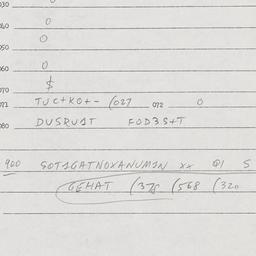 030
040 0
050 0
060 0
070 $
071 TUC+KO+- (027 072 0
080 DUSRUIT FOD3S+T
900 SOT1GATNOXANUM1N xx 01 S
GEHAT (378 (568 (320